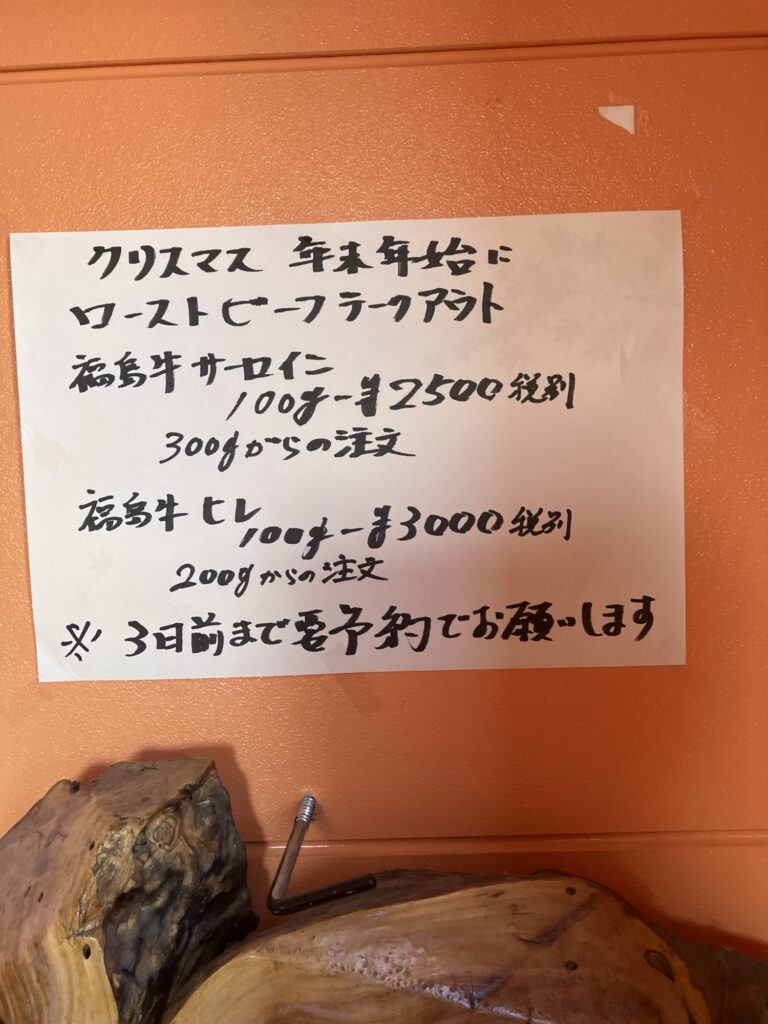 クリスマス 年末年始に
ローストビーフテークアウト
福島牛サーロイン
100g-¥2500税別
300gからの注文
福島牛ヒレ
100g-¥3000税別
200gからの注文
※ 3日前まで要予約でお願いします